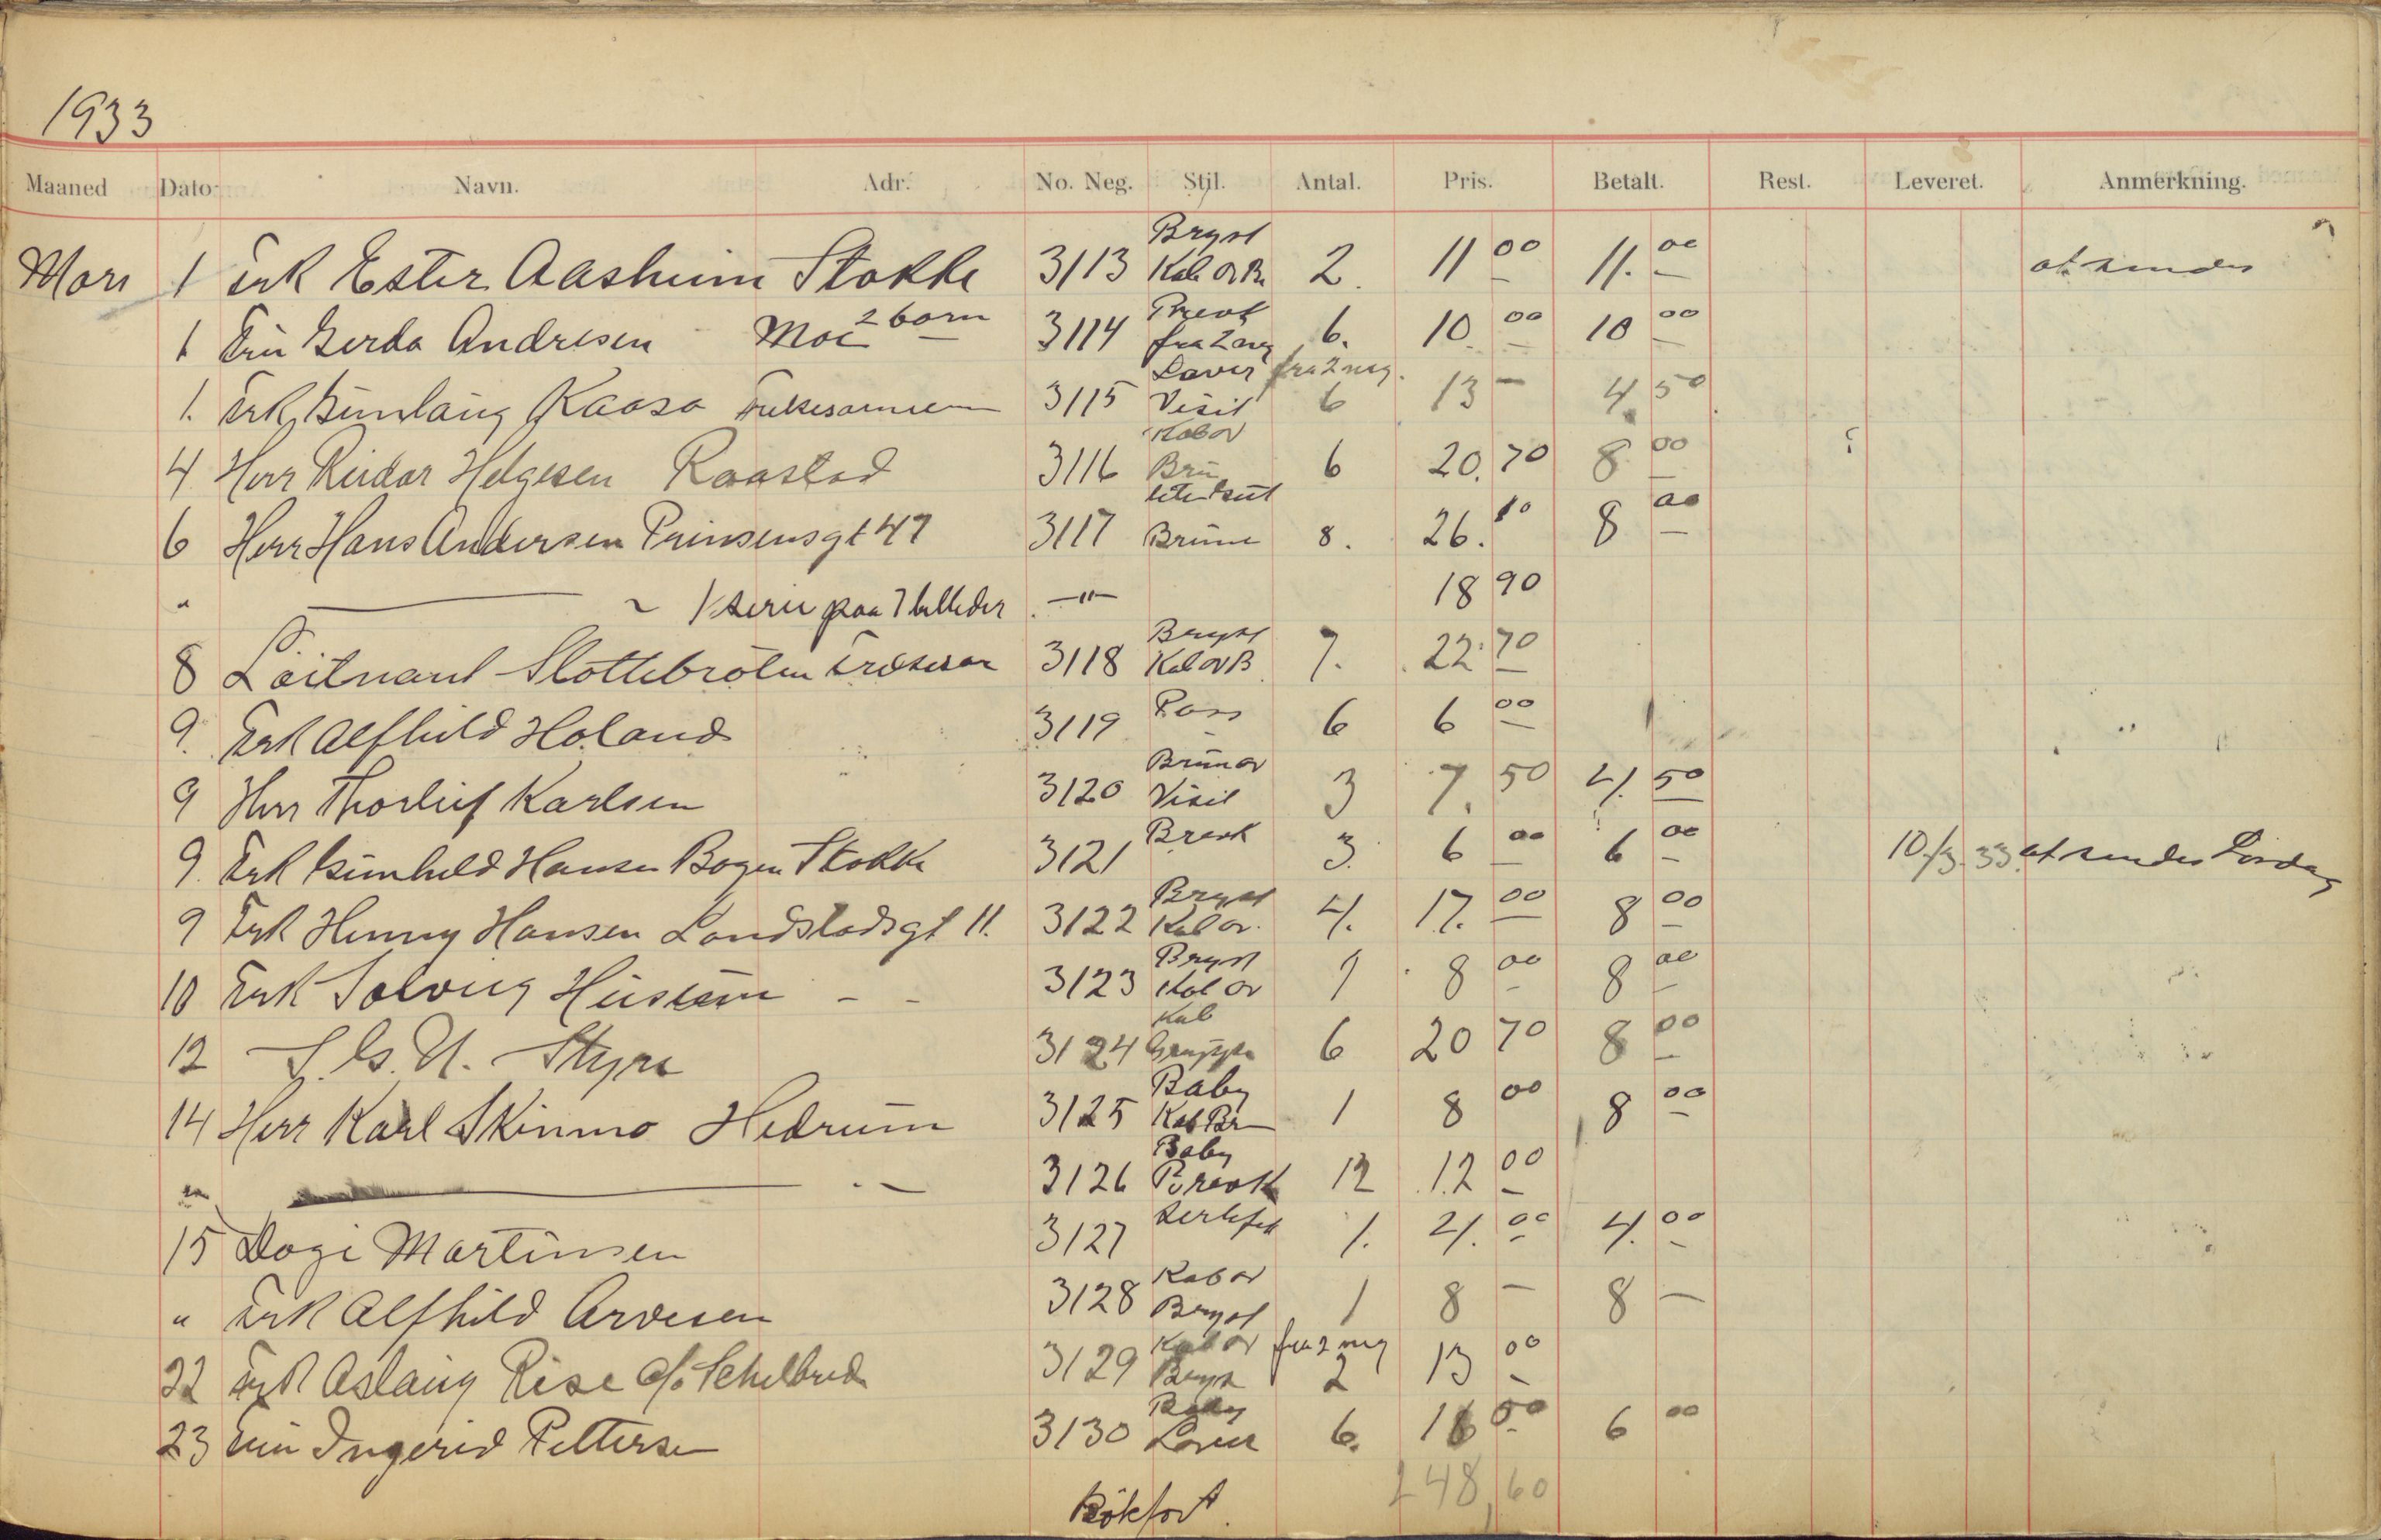 1933
Maaned Dato Navn. Adr. No. Neg. Stil. Antal. Pris. Betalt. Rest. Leveret. Anmerkning.
Mars 1 Frk Ester Aasheim Stokke 3113 Bryst Kab ov Br 2. 11 00 11. 00 at sendes
1 Fru Gerda Andresen Moe 2 barn 3114 Brevk fra 2 neg 6. 10. 00 10 00
1. Frk Gunlaug Kaasa 3115 Laver Visit fra 2 neg. 6 13 - 4. 50
4 Herr Reidar Helgesen Raastad 3116 Kabov Brun 6 20. 70 8 00
6 Herr Hans Andersen Prinsensgt 47 3117 Brune 8. 26. 10 8 00
" — ~ 1 serie paa 7 billeder —"— 18 90
8 Löitnant Slottebröten 3118 Bryst Kab ov B 7. 22 70
9. Frk Alfhild Holand 3119 Pass 6 6 00
9 Herr Thorleif Karlsen 3120 Brun ov Visit 3 7. 50 4. 50
9. Frk Gunhild Hansen Bogen Stokke 3121 Brevk 3. 6 00 6 00 10./3. 33. at sendes Lördag
9 Frk Henny Hansen Landstadsgt 11. 3122 Bryst Kab ov. 4. 17. 00 8 00
10 Frk Solveig - - 3123 Bryst Kab ov 1 8 00 8 00
12 S. G. U. Styre 3124 Kab Gruppe 6 20 70 8 00
14 Herr Karl Skinmo Hedrum 3125 Baby Kab Br 1 8 00 8 00
" — . — 3126 Baby Brevk 12 12 00
15 Dagi Martinsen 3127 1. 4. 00 4. 00
" Frk Alfhild Arvesen 3128 Kab ov Bryst 1 8 - 8 -
22 Frk Aslaug Rise c/o Schelbred 3129 Kab ov Bryst fra 2 neg 2 13 00
23 Fru Ingerid Pettersen 3130 Baby Laver 6. 16 00 6 00
Bökfört. 248,60